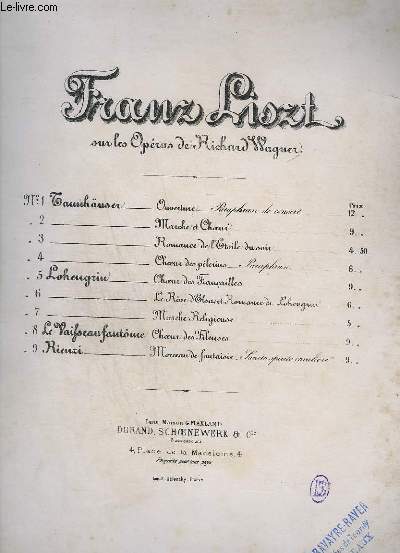 Franz Liszt
sur les Opéras de Richard Wagner.
Prix
Nº 1 Tannhäuser Ouverture Paraphrase de concert 12 "
" 2 Marche et Chœur 9 "
" 3 Romance de l'Etoile du soir 4 50
" 4 Chœur des pèlerins Paraphrase 6 "
" 5 Lohengrin Chœur des Fiançailles 9 "
" 6 Le Rêve d'Elsa et Romance de Lohengrin 6 "
" 7 Marche Religieuse 5 "
" 8 Le Vaisseau fantôme Chœur des Fileuses 9 "
" 9 Rienzi Morceau de fantaisie 9 "
Paris, Maison G. FLAXLAND
DURAND, SCHŒNEWERK & Cie
4, Place de la Madeleine, 4
Propriété pour tous pays
LAVAYRE-RAVEN
www.le-livre.com